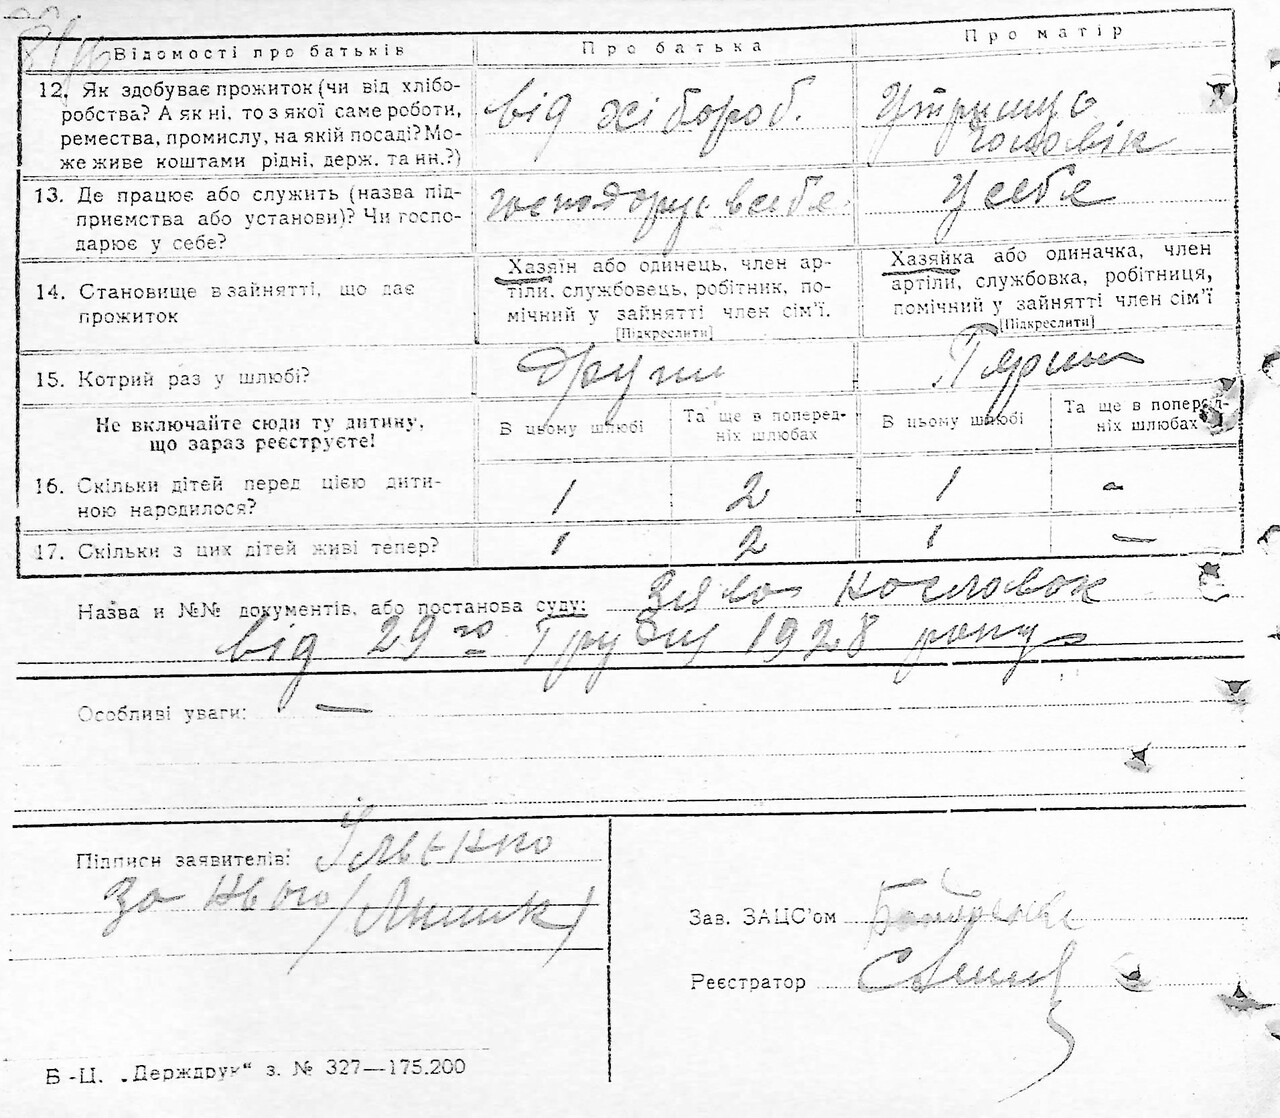 Відомості про батьків Про батька Про матір
12. Як здобуває прожиток (чи від хлібо-
робства? А як ні, то з якої саме роботи,
ремества, промислу, на якій посаді? Мо-
же живе коштами рідні, держ. та ин.?)
від хлібороб. Утримує
чоловік
13. Де працює або служить (назва під-
приємства або установи)? Чи госпо-
дарює у себе?
господарує в себе У себе
14. Становище в зайнятті, що дає
прожиток
Хазяїн або одинець, член ар-
тіли, службовець, робітник, по-
мічний у зайнятті член сім'ї.
[Підкреслити]
Хазяйка або одиначка, член
артіли, службовка, робітниця,
помічний у зайнятті член сім'ї
[Підкреслити]
15. Котрий раз у шлюбі? Други Перши
Не включайте сюди ту дитину,
що зараз реєструєте!
В цьому шлюбі Та ще в поперед-
ніх шлюбах
В цьому шлюбі Та ще в поперед-
ніх шлюбах
16. Скільки дітей перед цією дити-
ною народилося?
1 2 1 -
17. Скільки з цих дітей живі тепер? 1 2 1 —
Назва и №№ документів, або постанова суду:
від 29го Грудня 1928 року
Особливі уваги: —
Підписи заявителів:
за нього
Зав. ЗАЦС'ом
Реєстратор
Б-Ц. „Держдрук“ з. № 327—175.200